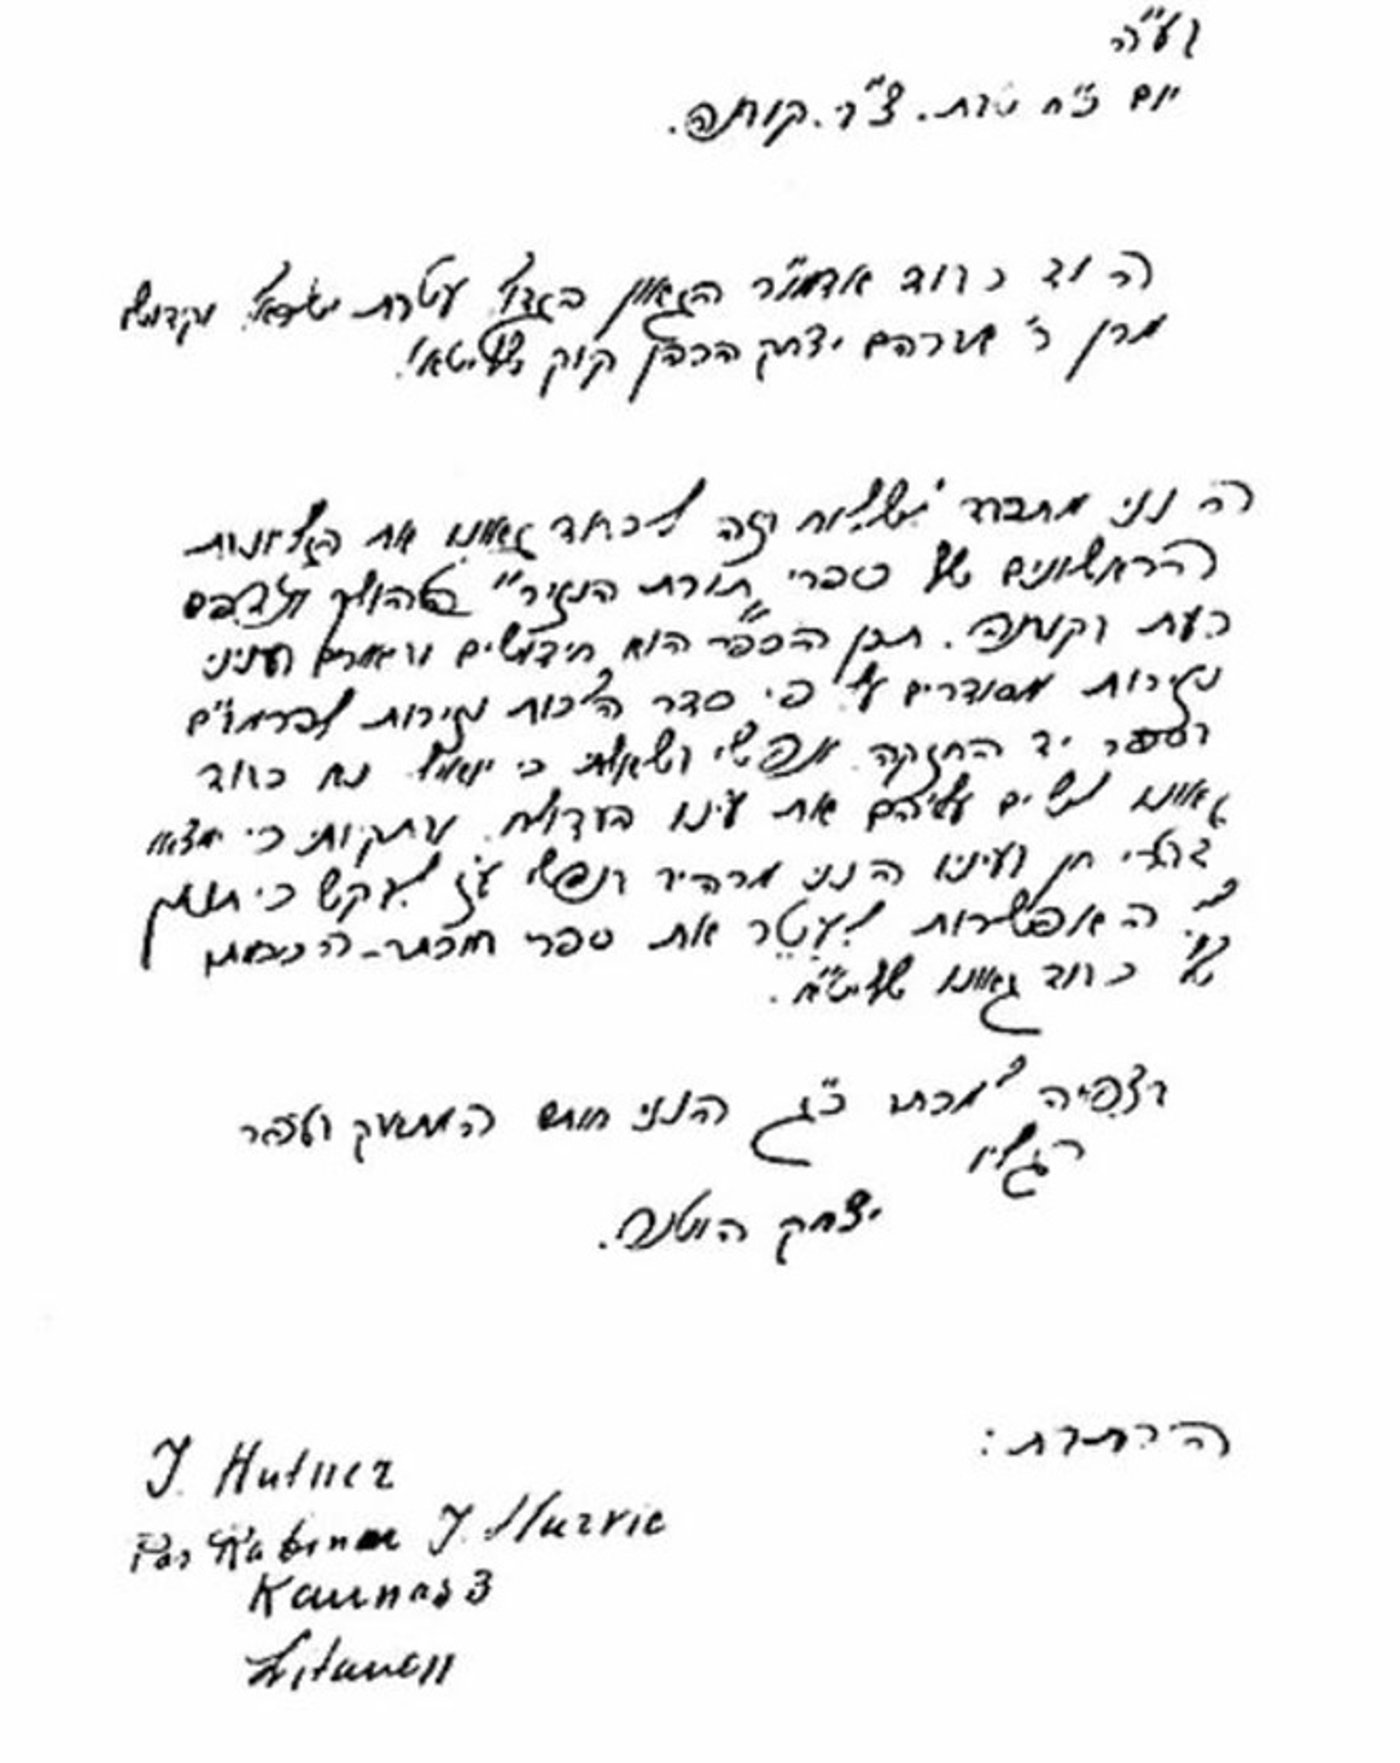 בע"ה
יום כ"ח טבת. צ"ב. קובנה.
הוד כבוד אדמו"ר הגאון הגדול עטרת ישראל וקדושו
מרן ר' אברהם יצחק הכהן קוק שליט"א!
הנני מתכבד לשלוח בזה לכבוד גאונו את הגליונות
הראשונים של ספרי "תורת הנזיר" ההולך ונדפס
כעת בקובנה. תכן הספר הוא חידושים ובאורים בעניני
נזירות מסודרים על פי סדר הלכות נזירות להרמב"ם
בספר יד החזקה. ונפשי בשאלתי כי יואיל נא כבוד
גאונו לשים עליהם את עינו הבדולח. ובתקותי כי ימצאו
דברי חן בעיניו הנני מרהיב בנפשי עז לבקש כי תנתן
לי האפשרות לעטר את ספרי במכתב-הסכמתו
של כבוד גאונו שליט"א.
בצפיה למכתב כ"ג הנני חותם המתאבק בעפר
רגליו
יצחק הוטנר.
הכתבת:
J. Hutner
Per Rabiner J. Hurvic
Kaunas 3
Litauen